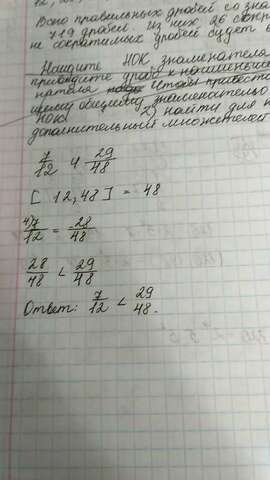 Всего правильных дробей со зна
719 дробей из них 26 сокр
не сократимых дробей будет
Найдите НОК знаменателя
приведите дроб к наименьше
нателя чтобы привести
общему знаменателю
НОК 2) найти для
дополнительный множителей
7/12 и 29/48
[ 12,48 ] = 48
4) 7/12 = 28/48
28/48 < 29/48
Ответ: 7/12 < 29/48.